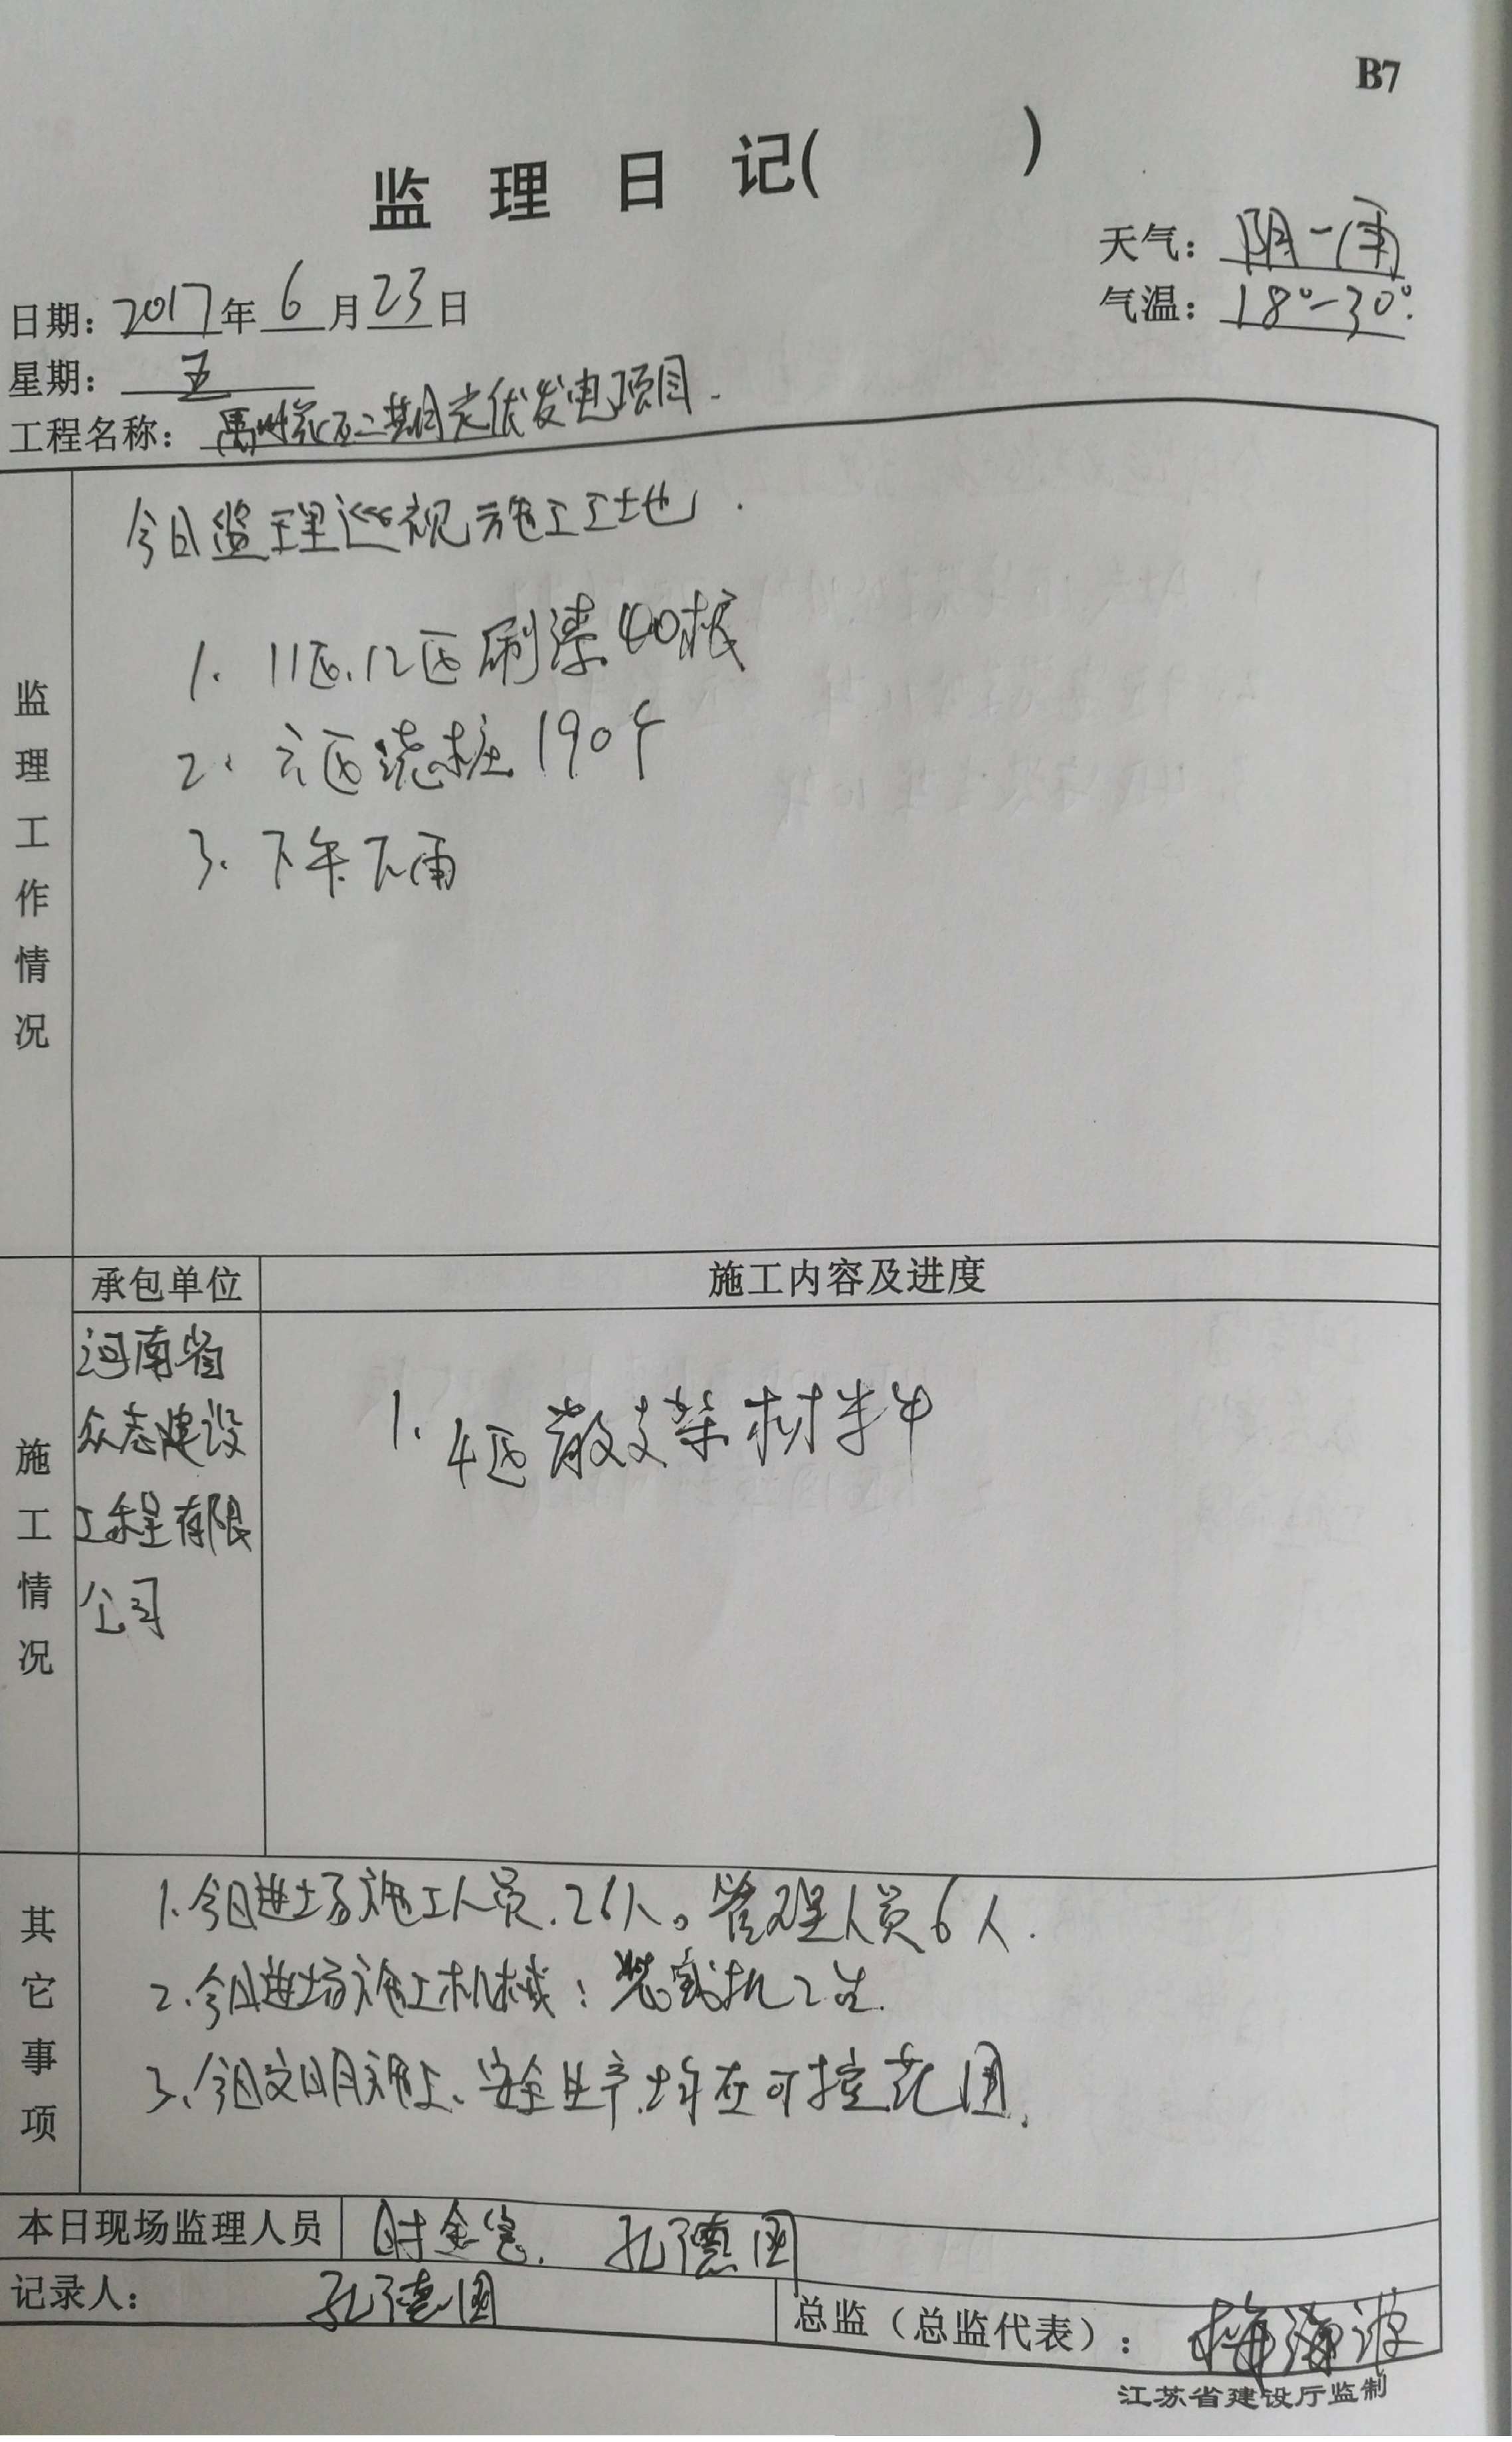 B7
监理日记(　　　)
天气：阴-雨
日期：2017年6月23日
气温：18°-30°.
星期：五
工程名称：禹州花石二期光伏发电项目.
监理工作情况
今日监理巡视施工工地.
1. 11区.12区刷漆40根
2. 六区浇桩190个
3. 下午下雨
承包单位
施工内容及进度
施工情况
河南省
众志建设
工程有限
公司
1. 4区散支架材料
其它事项
1.今日进场施工人员.26人。管理人员6人.
2.今日进场施工机械：装载机2台.
3.今日文明施工、安全生产.均在可控范围.
本日现场监理人员 时金 孔德国
记录人： 孔德国
总监（总监代表）：梅海波
江苏省建设厅监制